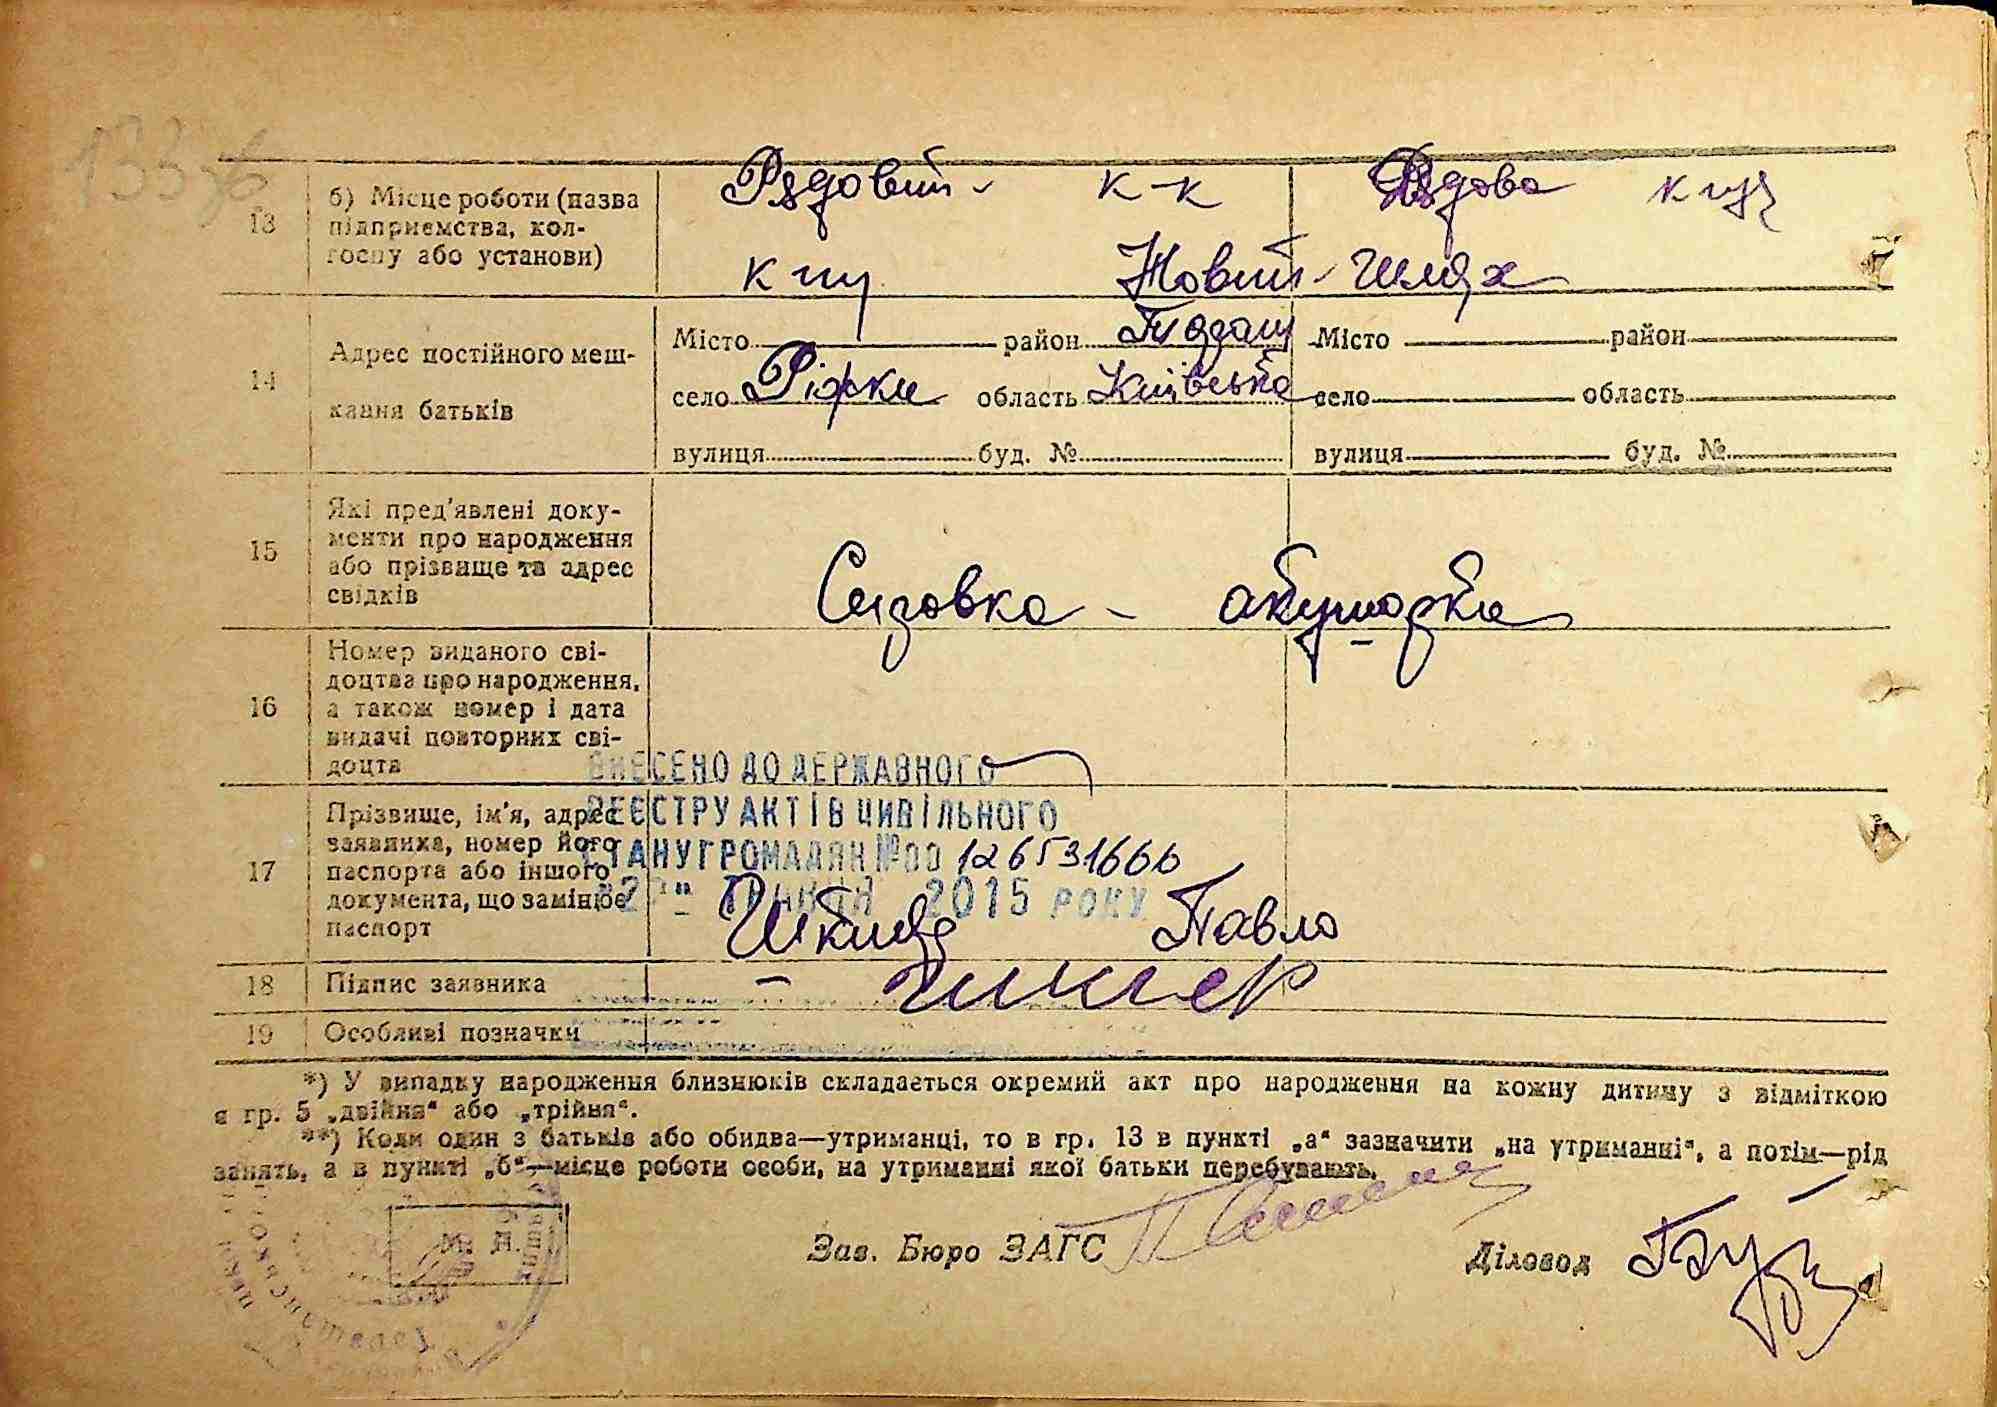 13
б) Місце роботи (назва
підприємства, кол-
госпу або установи)
Рядовий - к-к
Рядова
Новий шлях
14
Адрес постійного меш-
кання батьків
Місто район Місто район
село Ріжки область Київська село область
вулиця буд. № вулиця буд. №
15
Які пред'явлені доку-
менти про народження
або прізвище та адрес
свідків
акушорки
16
Номер виданого сві-
доцтва про народження,
а також номер і дата
видачі повторних сві-
доцтв
ВНЕСЕНО ДО ДЕРЖАВНОГО
РЕЄСТРУ АКТІВ ЦИВІЛЬНОГО
СТАНУ ГРОМАДЯН №00126531666
ТРАВНЯ 2015 РОКУ
17
Прізвище, ім'я, адрес
заявника, номер його
паспорта або іншого
документа, що замінює
паспорт
Павло
18
Підпис заявника
19
Особливі позначки
*) У випадку народження близнюків складається окремий акт про народження на кожну дитину з відміткою
в гр. 5 „двійня“ або „трійня“.
**) Коли один з батьків або обидва—утриманці, то в гр. 13 в пункті „а“ зазначити „на утриманні“, а потім—рід
занять, а в пункті „б“—місце роботи особи, на утриманні якої батьки перебувають.
М. П.
Зав. Бюро ЗАГС
Діловод